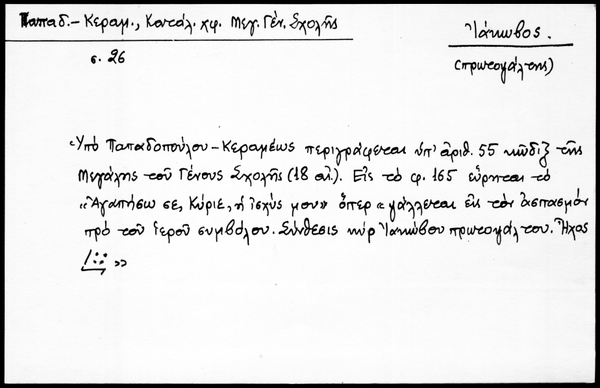 Παπαδ.-Κεραμ., Κατάλ. χφ. Μεγ. Γέν. Σχολῆς
Ἰάκωβος.
σ. 26
(πρωτοψάλτης)
Ὑπὸ Παπαδοπούλου-Κεραμέως περιγράφεται ὑπ' ἀριθ. 55 κῶδιξ τῆς
Μεγάλης τοῦ Γένους Σχολῆς (18 αἰ.). Εἰς τὸ φ. 165 εὕρηται τὸ
«Ἀγαπήσω σε, Κύριε, ἡ ἰσχύς μου» ὅπερ «ψάλλεται εἰς τὸν ἀσπασμόν
πρὸ τοῦ ἱεροῦ συμβόλου. Σύνθεσις κὺρ Ἰακώβου πρωτοψάλτου. Ἦχος
»